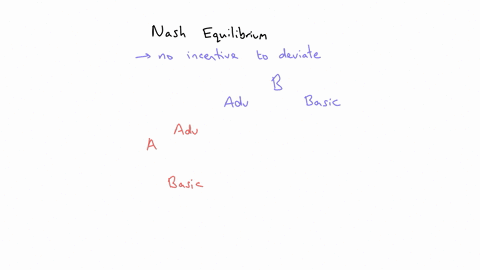 Nash Equilibrium
→ no incentive to deviate
B
Adv Basic
Adv
A
Basic